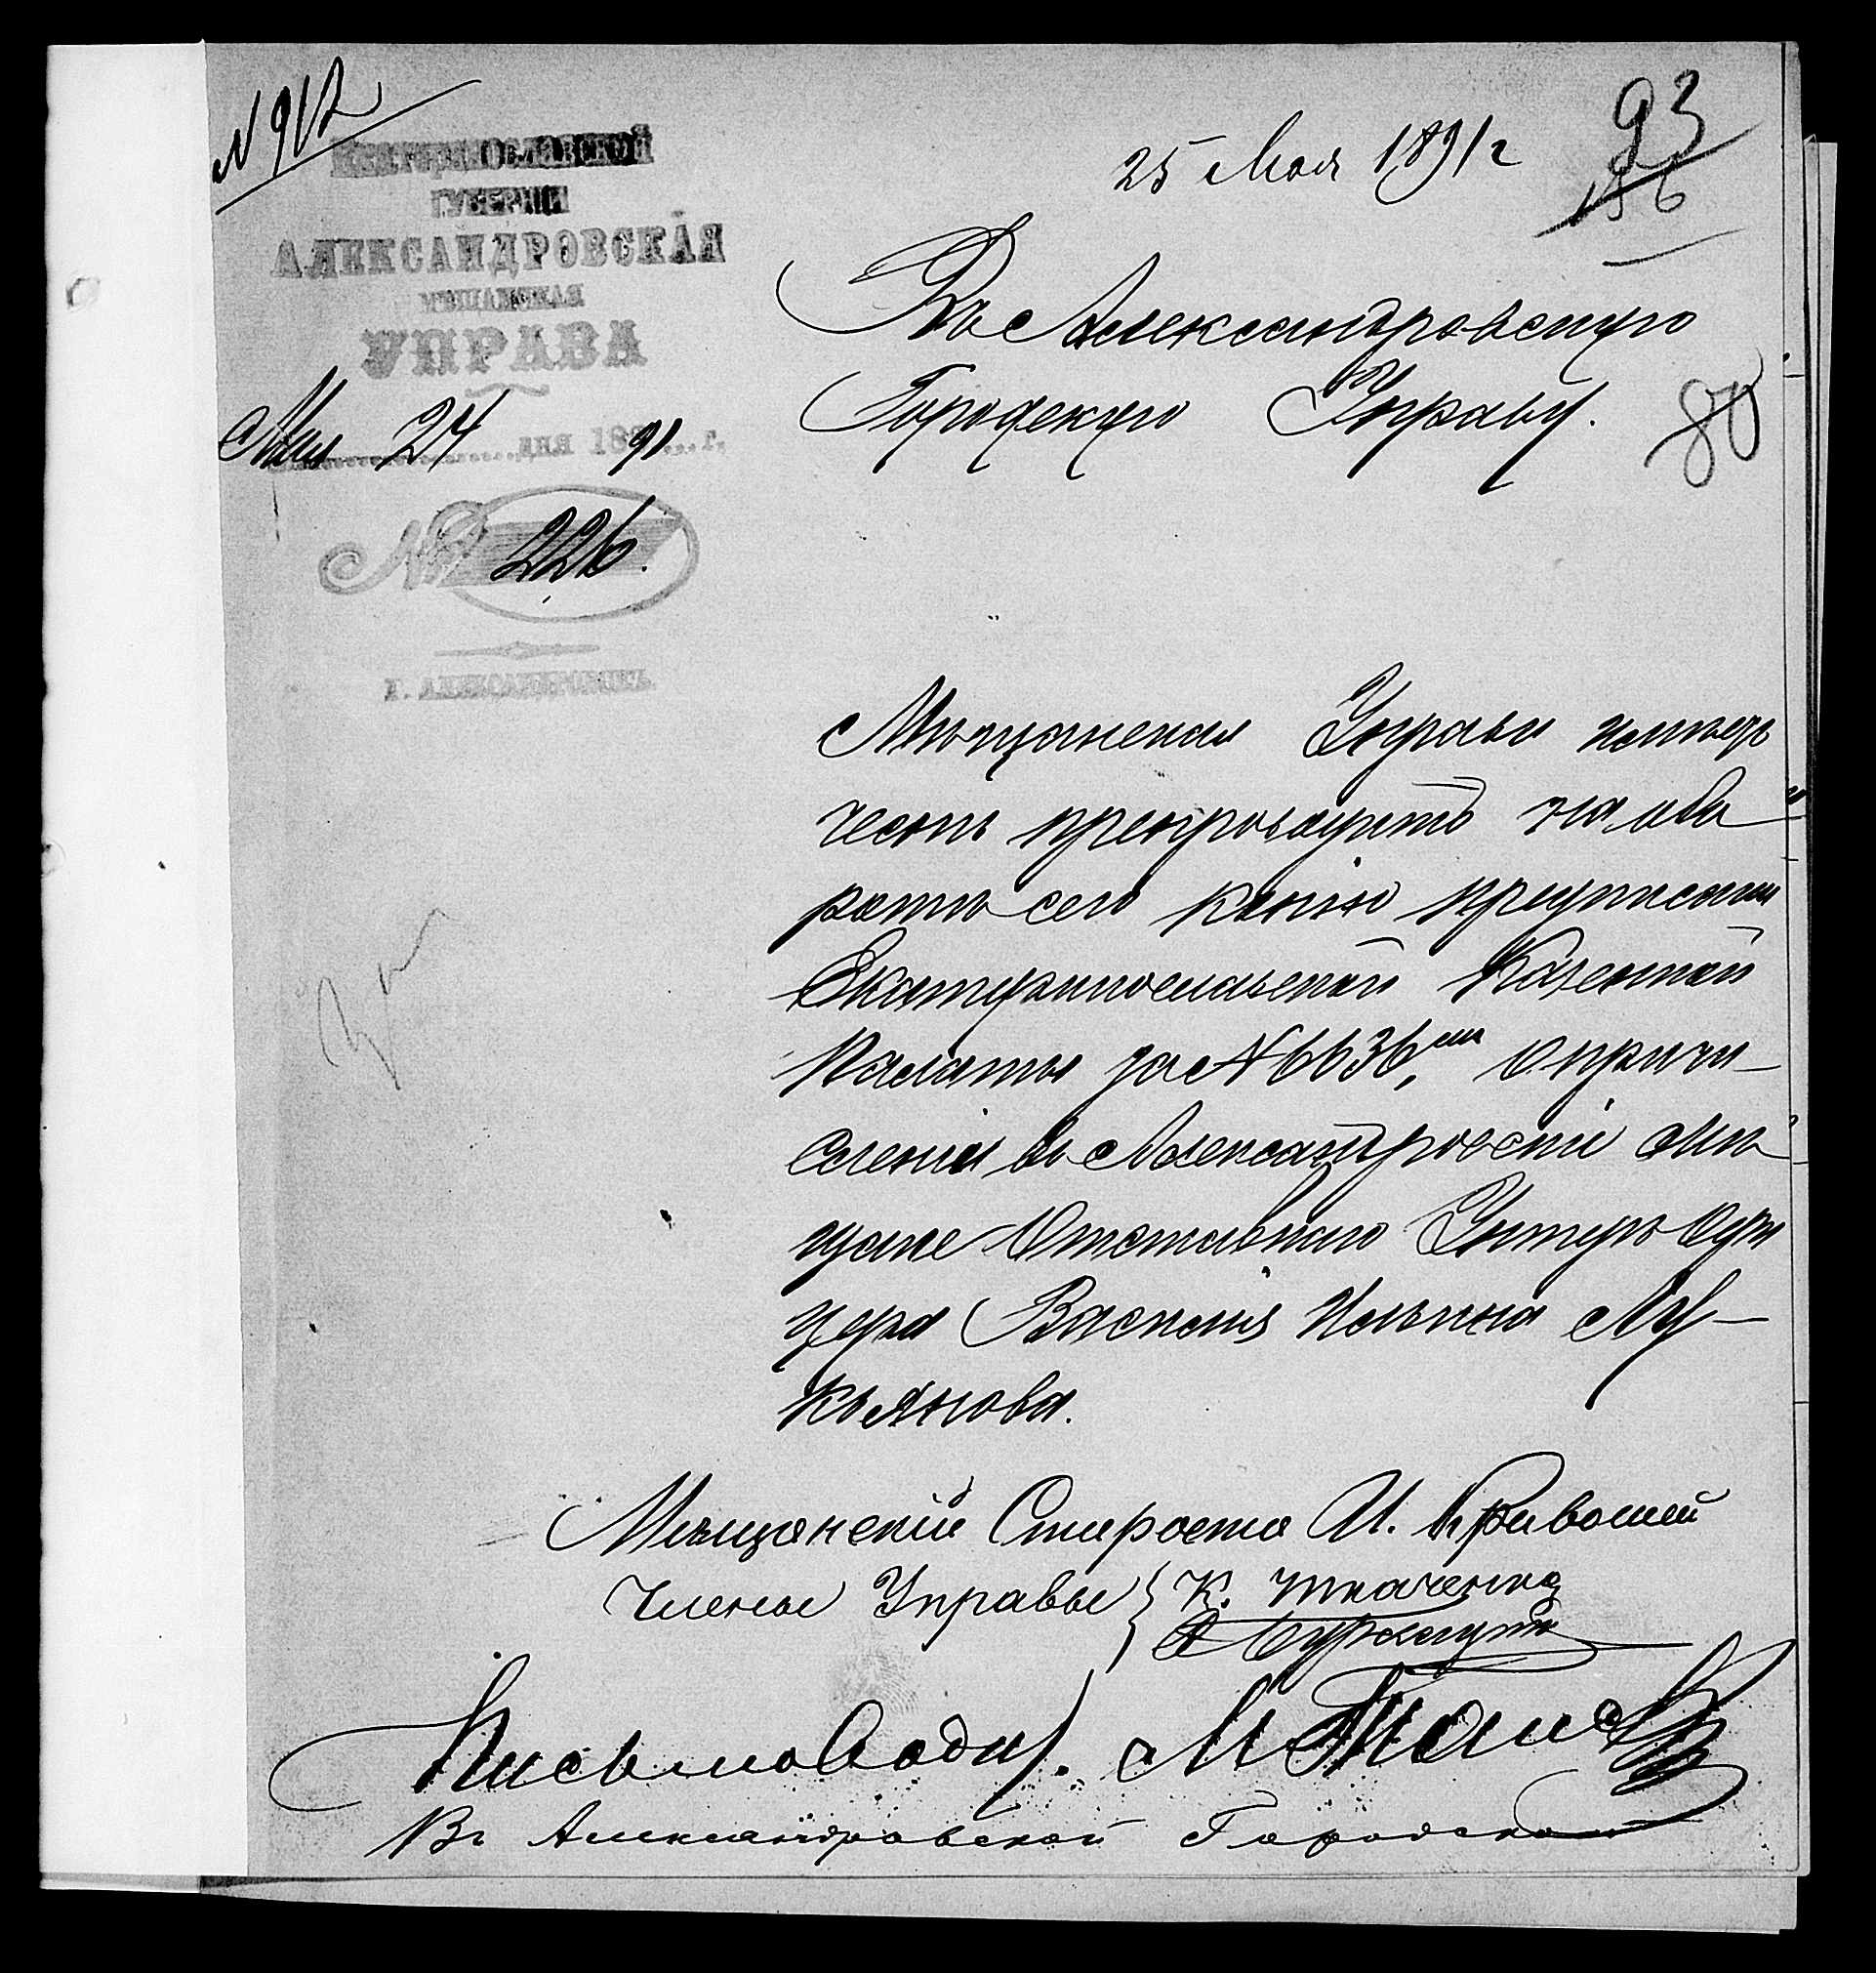 N 912
Екатеринославской
губерніи
АЛЕКСАНДРОВСКАЯ
МѢЩАНСКАЯ
УПРАВА
Мая 24 дня 1891 г.
№ 226.
Г. АЛЕКСАНДРОВСКЪ.
25 Мая 1891 г
93
156
80
Въ Александровскую
Городскую Управу.
Мѣщанская Управа имѣетъ
честь препроводить на обо
ротѣ сего копію предписанія
Екатеринославской Казенной
Палаты за N 6636, о причи-
сленіи въ Александровскіе мѣ
щане Отставнаго Унтеръ Офи
цера Василія Ильина Лу-
кьянова.
Мѣщанскій Староста И. Кривошей
Члены Управы { К. Ткаченко
Письмоводит.
Въ Александровской Городской